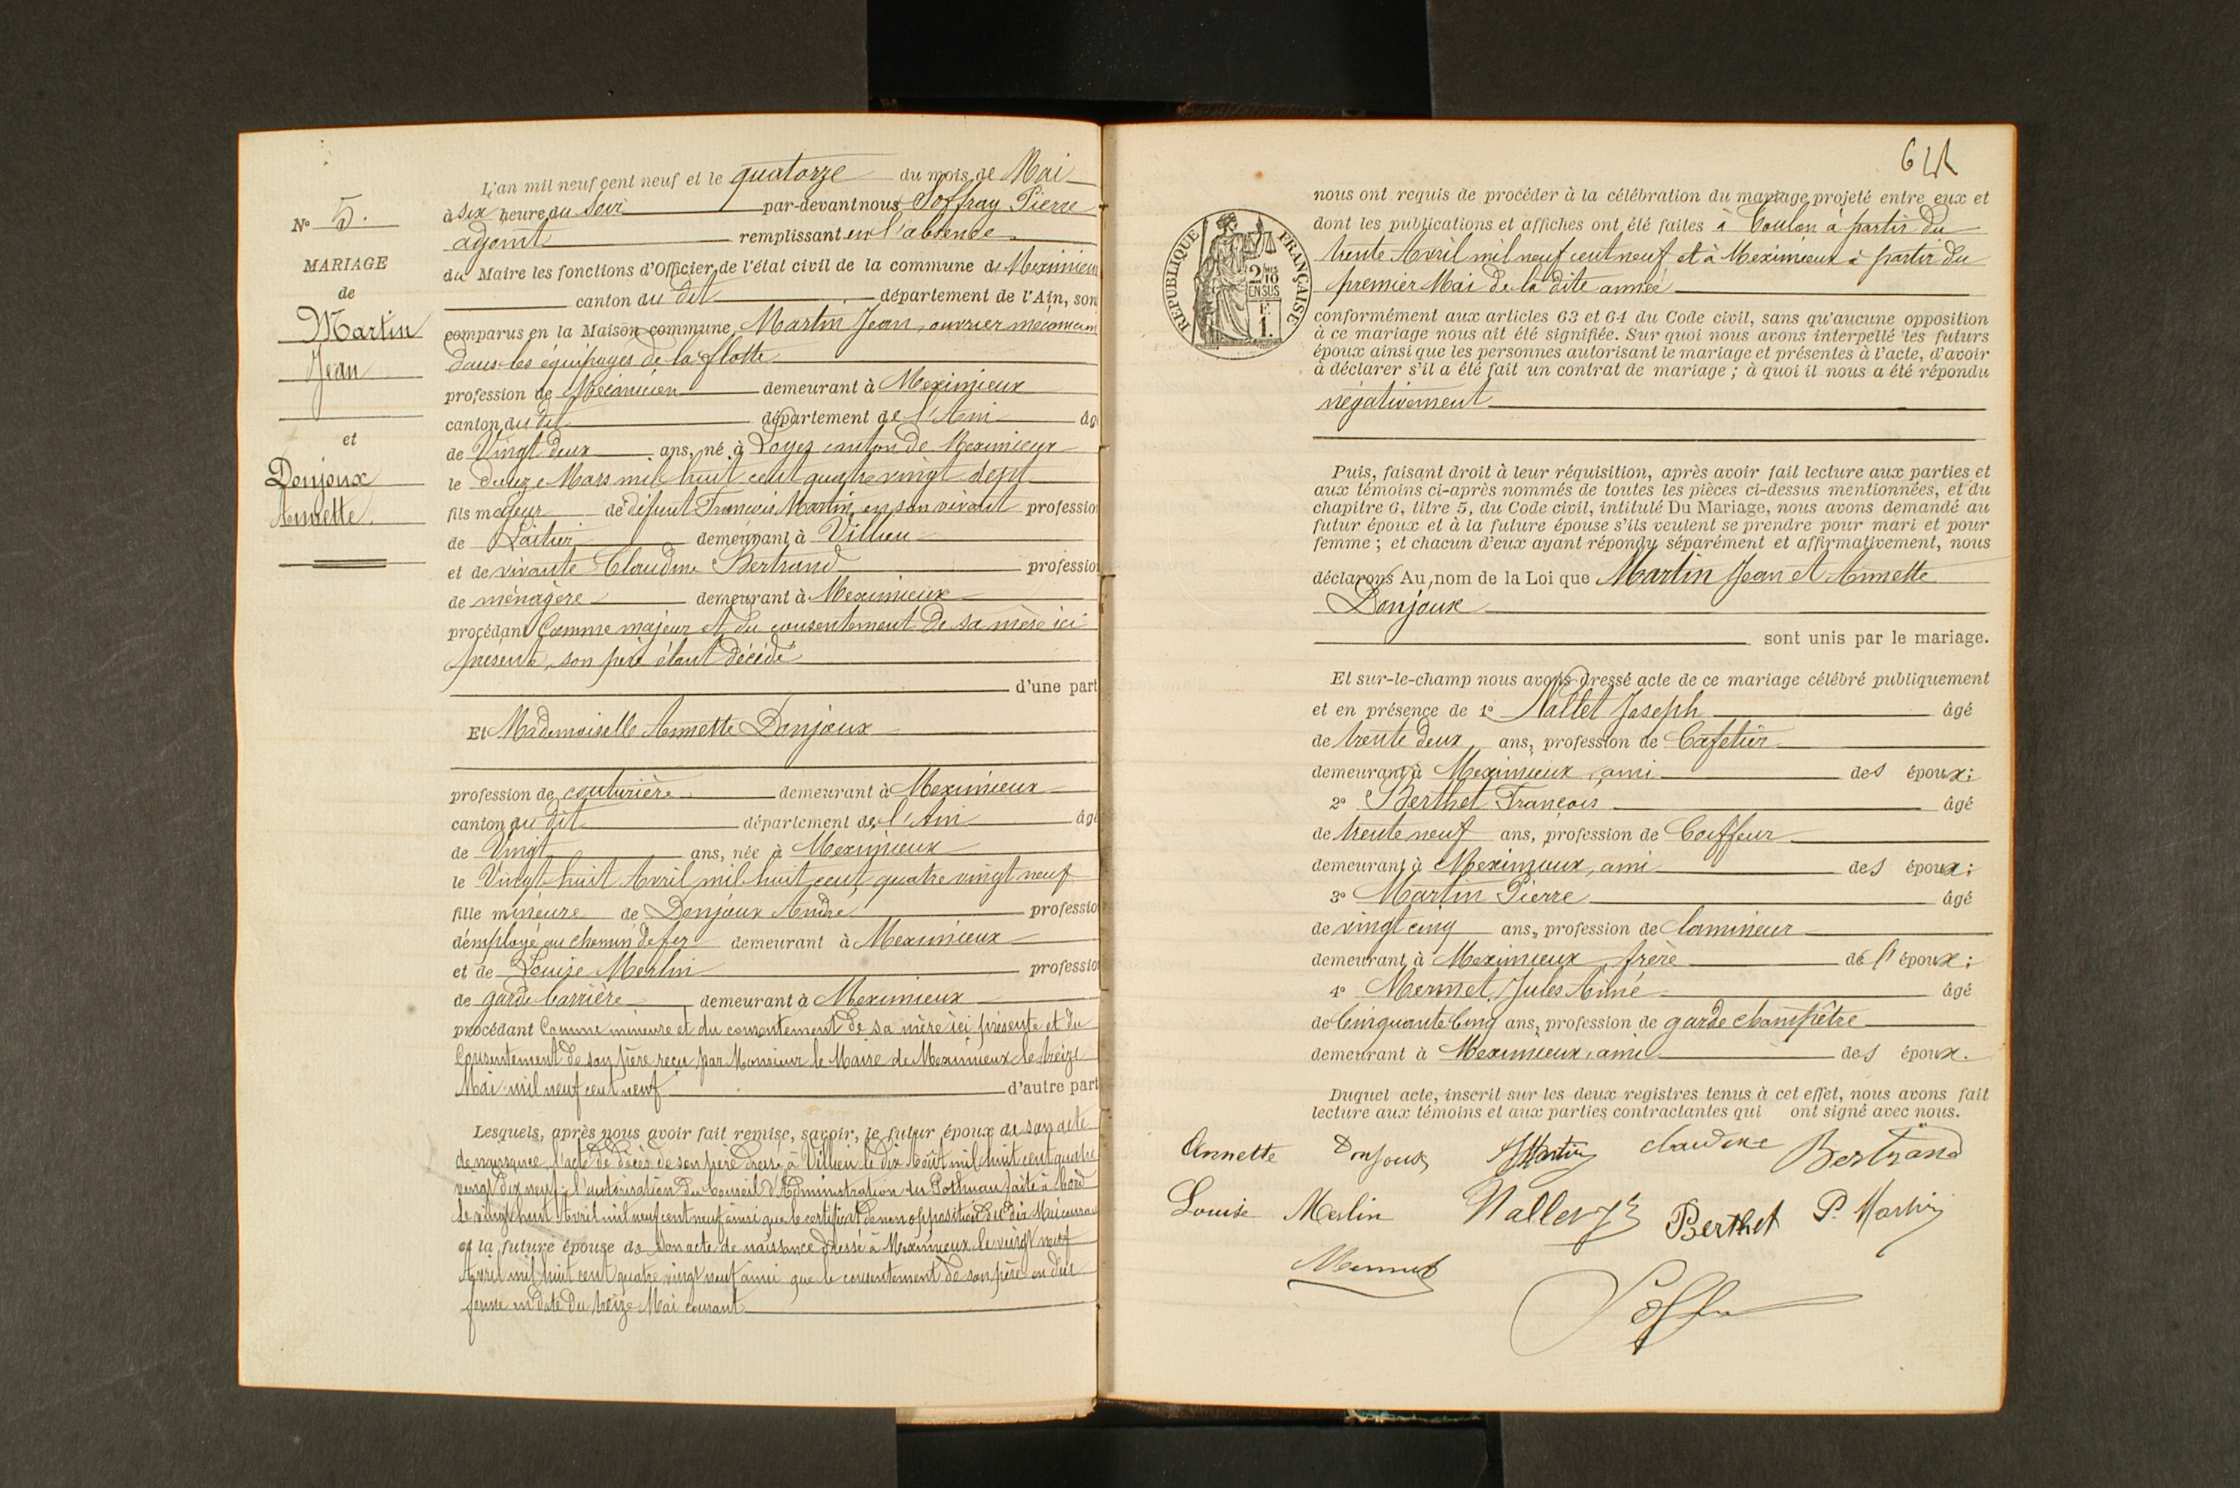 L'an mil neuf cent neuf et le quatorze du mois de Mai
N° 5. à six heure du Soir par-devant nous Soffray Pierre
adjoint remplissant en l'absence
MARIAGE
de
Martin
Jean
et
Donjoux
Annette.
du Maire les fonctions d'Officier de l'état civil de la commune de Meximieux
canton du dit département de l'Ain, son
comparus en la Maison commune, Martin Jean, ouvrier mécanicien
dans les équipages de la flotte
profession de Mécanicien demeurant à Meximieux
canton du dit département de l'Ain âg
de Vingt deux ans, né à Loyes canton de Meximieux
le douze Mars mil huit cent quatre vingt sept
fils majeur de défunt François Martin, en son vivant professio
de Laitier demeurant à Villieu
et de vivante Claudine Bertrand professio
de ménagère demeurant à Meximieux
procédant Comme majeur et du consentement de sa mère ici
présente, son père étant décédé
d'une part
Et Mademoiselle Annette Donjoux
profession de couturière demeurant à Meximieux
canton du dit département de l'Ain âgé
de Vingt ans, née à Meximieux
le Vingt huit Avril mil huit cent quatre vingt neuf
fille mineure de Donjoux André professio
d'employé au chemin de fer demeurant à Meximieux
et de Louise Merlin professio
de garde barrière demeurant à Meximieux
procédant Comme mineure et du consentement de sa mère ici présente et du
Consentement de son père reçu par Monsieur le Maire de Meximieux le treize
Mai mil neuf cent neuf d'autre part
Lesquels, après nous avoir fait remise, savoir, le futur époux de son acte
de naissance, l'acte de décès de son père dressé à Villieu le dix Août mil huit cent quatre
vingt dix neuf, l'autorisation du Conseil d'Administration du Pothuau faite à bord
le vingt huit Avril mil neuf cent neuf ainsi que le certificat de non opposition du dix Mai courant
et la future épouse de son acte de naissance dressé à Meximieux le vingt neuf
Avril mil huit cent quatre vingt neuf ainsi que le consentement de son père en due
forme en date du treize Mai courant
RÉPUBLIQUE FRANÇAISE
2/10
EN SUS
F.
1.
nous ont requis de procéder à la célébration du mariage projeté entre eux et
dont les publications et affiches ont été faites à Toulon à partir du
trente Avril mil neuf cent neuf et à Meximieux à partir du
premier Mai de la dite année
conformément aux articles 63 et 64 du Code civil, sans qu'aucune opposition
à ce mariage nous ait été signifiée. Sur quoi nous avons interpellé les futurs
époux ainsi que les personnes autorisant le mariage et présentes à l'acte, d'avoir
à déclarer s'il a été fait un contrat de mariage ; à quoi il nous a été répondu
négativement
Puis, faisant droit à leur réquisition, après avoir fait lecture aux parties et
aux témoins ci-après nommés de toutes les pièces ci-dessus mentionnées, et du
chapitre 6, titre 5, du Code civil, intitulé Du Mariage, nous avons demandé au
futur époux et à la future épouse s'ils veulent se prendre pour mari et pour
femme ; et chacun d'eux ayant répondu séparément et affirmativement, nous
déclarons Au nom de la Loi que Martin Jean et Annette
Donjoux
sont unis par le mariage.
Et sur-le-champ nous avons dressé acte de ce mariage célébré publiquement
et en présence de 1° Nallet Joseph âgé
de trente deux ans, profession de Cafetier
demeurant à Meximieux, ami des époux;
2° Berthet François âgé
de trente neuf ans, profession de Coiffeur
demeurant à Meximieux, ami des époux;
3° Martin Pierre âgé
de vingt cinq ans, profession de lamineur
demeurant à Meximieux, frère de l'époux;
4° Mermet Jules Aimé âgé
de Cinquante Cinq ans, profession de garde champêtre
demeurant à Meximieux, ami des époux.
Duquel acte, inscrit sur les deux registres tenus à cet effet, nous avons fait
lecture aux témoins et aux parties contractantes qui ont signé avec nous.
Annette Donjoux JMartin claudine Bertrand
Louise Merlin Nallet Berthet P. Martin
Mermet